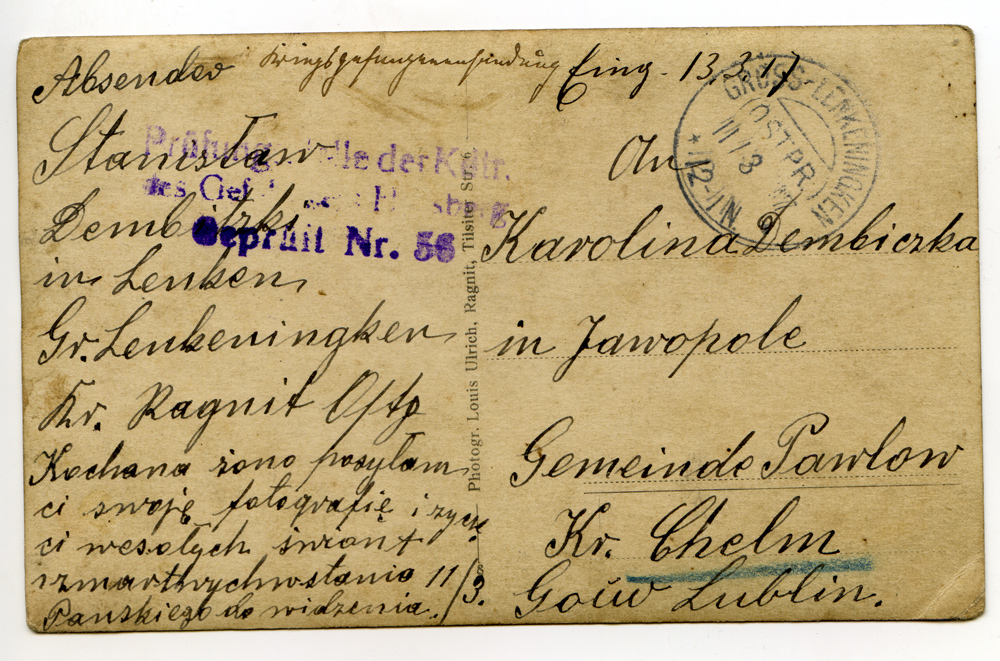 Absender Kriegsgefangenensendung Eing. 13.3.17
Stanisław
Dembitzki
in Lenken
Gr. Lenkeningken
Kr. Ragnit Ostp
Kochana żono posyłam
ci swoję fotografię i życzę
ci wesołych świant
zmartwychwstania 11/3.
Pańskiego do widzenia.
Prüfungsstelle der Kdtr.
des
Geprüft Nr. 56
Photogr. Louis Ulrich, Ragnit, Tilsiter Str.
GROSS-LENKENINGKEN
(OSTPR.)
11/3
* 12-1N
An
Karolina Dembiczka
in Jawopole
Gemeinde Pawlow
Kr. Chelm
Gouw Lublin.